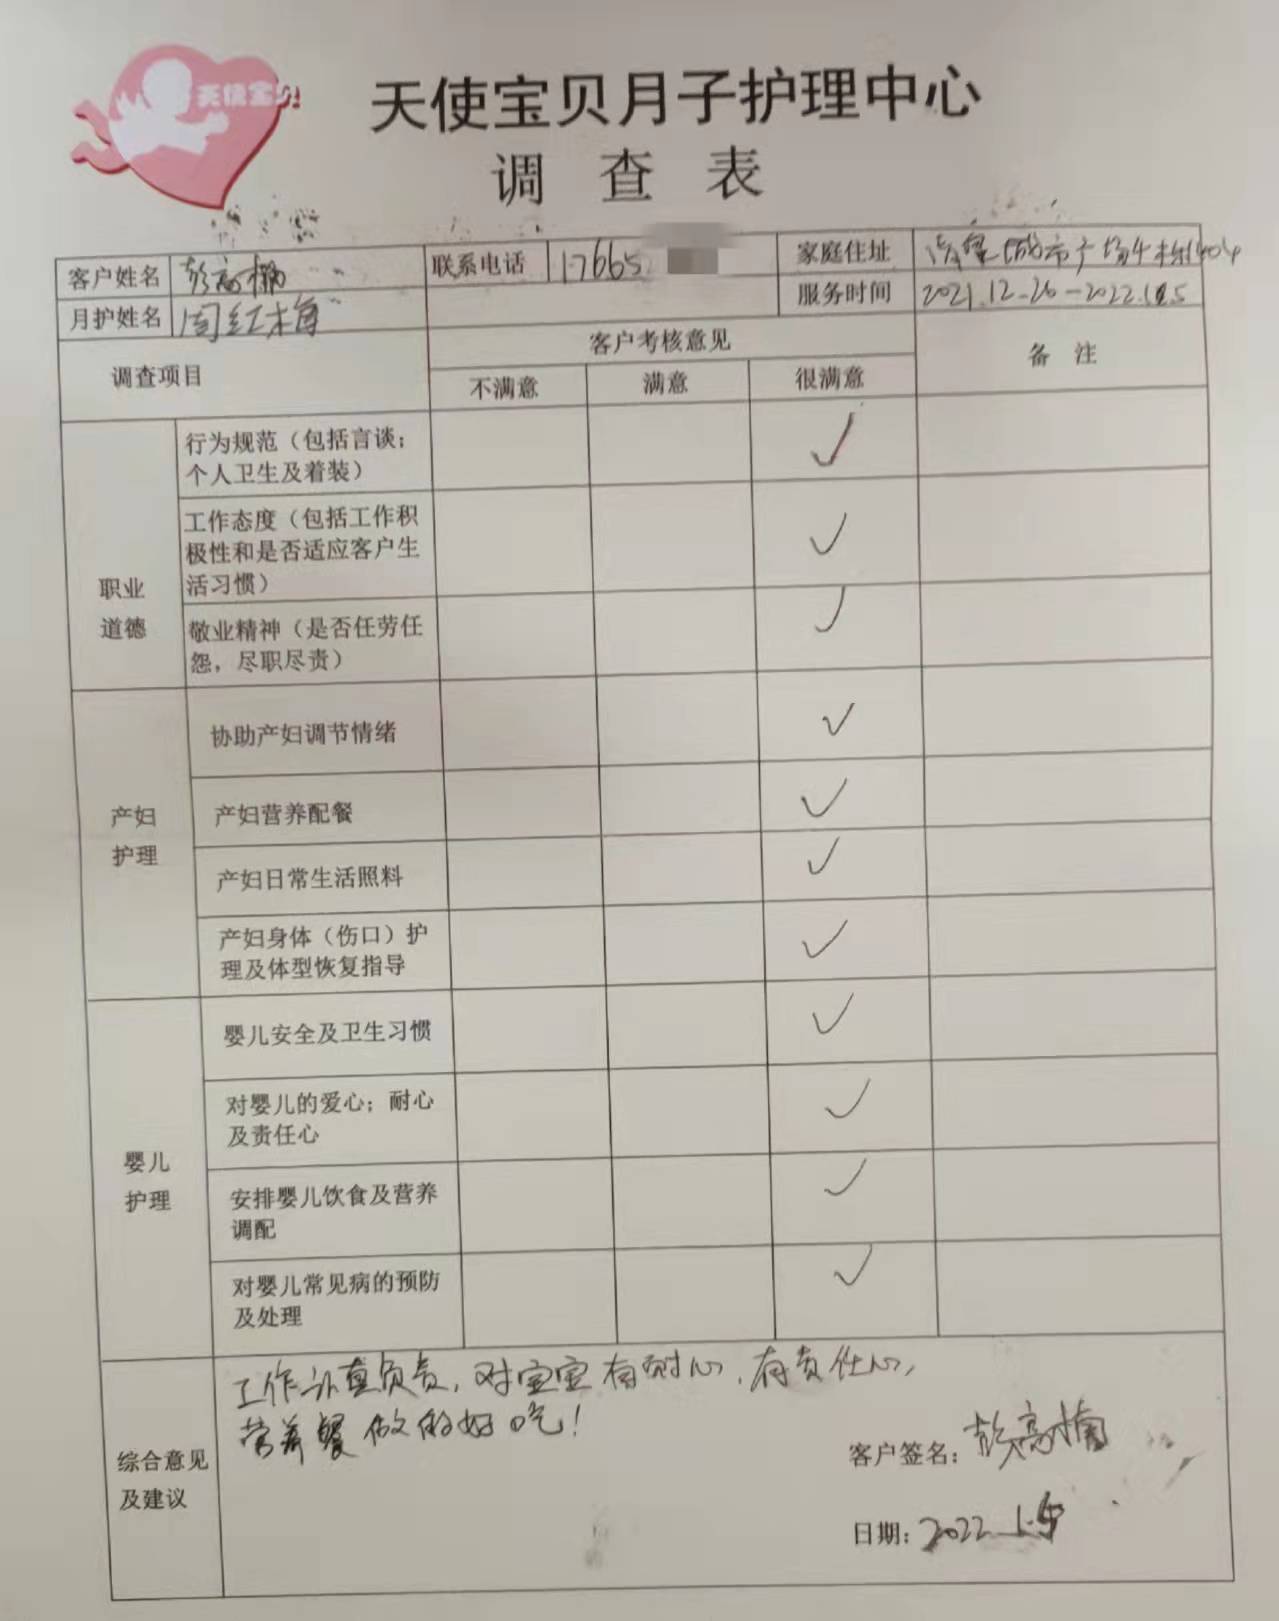 天使宝贝
天使宝贝月子护理中心
调 查 表
客户姓名 彭高楠 联系电话 17665 家庭住址 城市广场牛栋1404
月护姓名 周红梅 服务时间 2021.12-26-2022.1.5
调查项目 客户考核意见 备 注
不满意 满意 很满意
职业
道德
行为规范（包括言谈；
个人卫生及着装） ✓
工作态度（包括工作积
极性和是否适应客户生
活习惯） ✓
敬业精神（是否任劳任
怨，尽职尽责） ✓
产妇
护理
协助产妇调节情绪 ✓
产妇营养配餐 ✓
产妇日常生活照料 ✓
产妇身体（伤口）护
理及体型恢复指导 ✓
婴儿
护理
婴儿安全及卫生习惯 ✓
对婴儿的爱心；耐心
及责任心 ✓
安排婴儿饮食及营养
调配 ✓
对婴儿常见病的预防
及处理 ✓
综合意见
及建议
工作认真负责，对宝宝有耐心，有责任心，
营养餐做的好吃！
客户签名：彭高楠
日期：2022.1.5